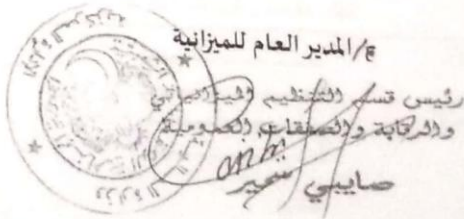 ع/المدير العام للميزانية
رئيس قسم التنظيم الميزانياتي
والرقابة والصفقات العمومية
صايبي سمير